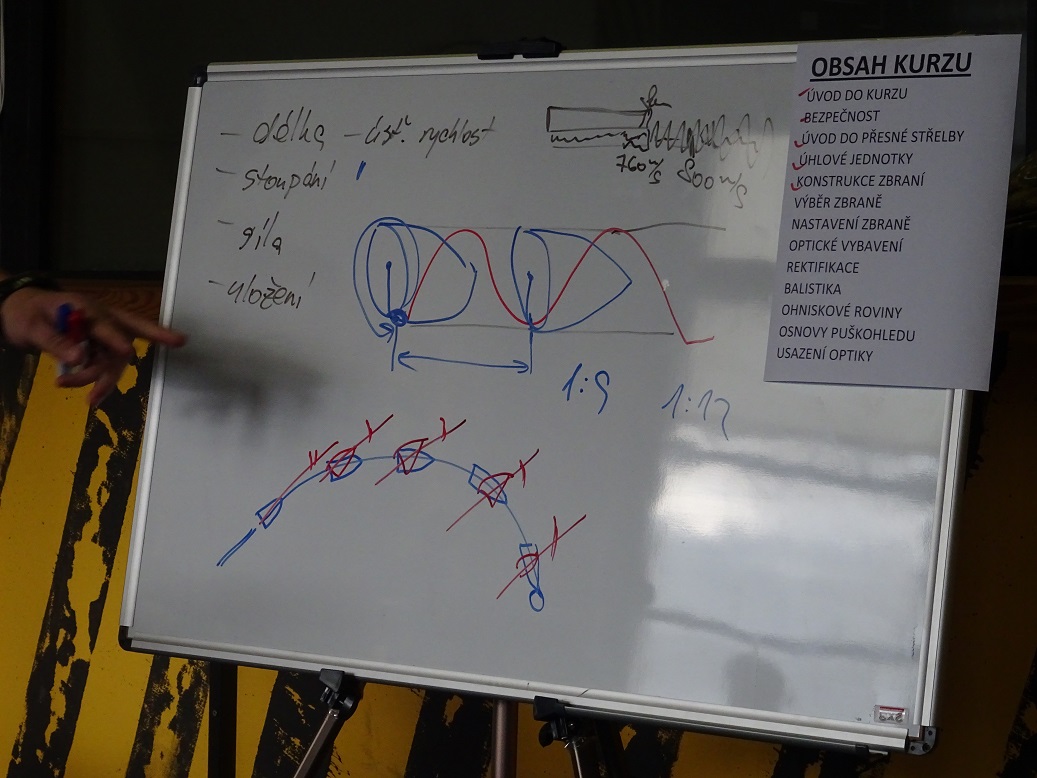 - délka - úsť. rychlost
- stoupání
- síla
- uložení
760 m/s 800 m/s
1:9 1:12
OBSAH KURZU
ÚVOD DO KURZU
BEZPEČNOST
ÚVOD DO PŘESNÉ STŘELBY
ÚHLOVÉ JEDNOTKY
KONSTRUKCE ZBRANÍ
VÝBĚR ZBRANĚ
NASTAVENÍ ZBRANĚ
OPTICKÉ VYBAVENÍ
REKTIFIKACE
BALISTIKA
OHNISKOVÉ ROVINY
OSNOVY PUŠKOHLEDU
USAZENÍ OPTIKY